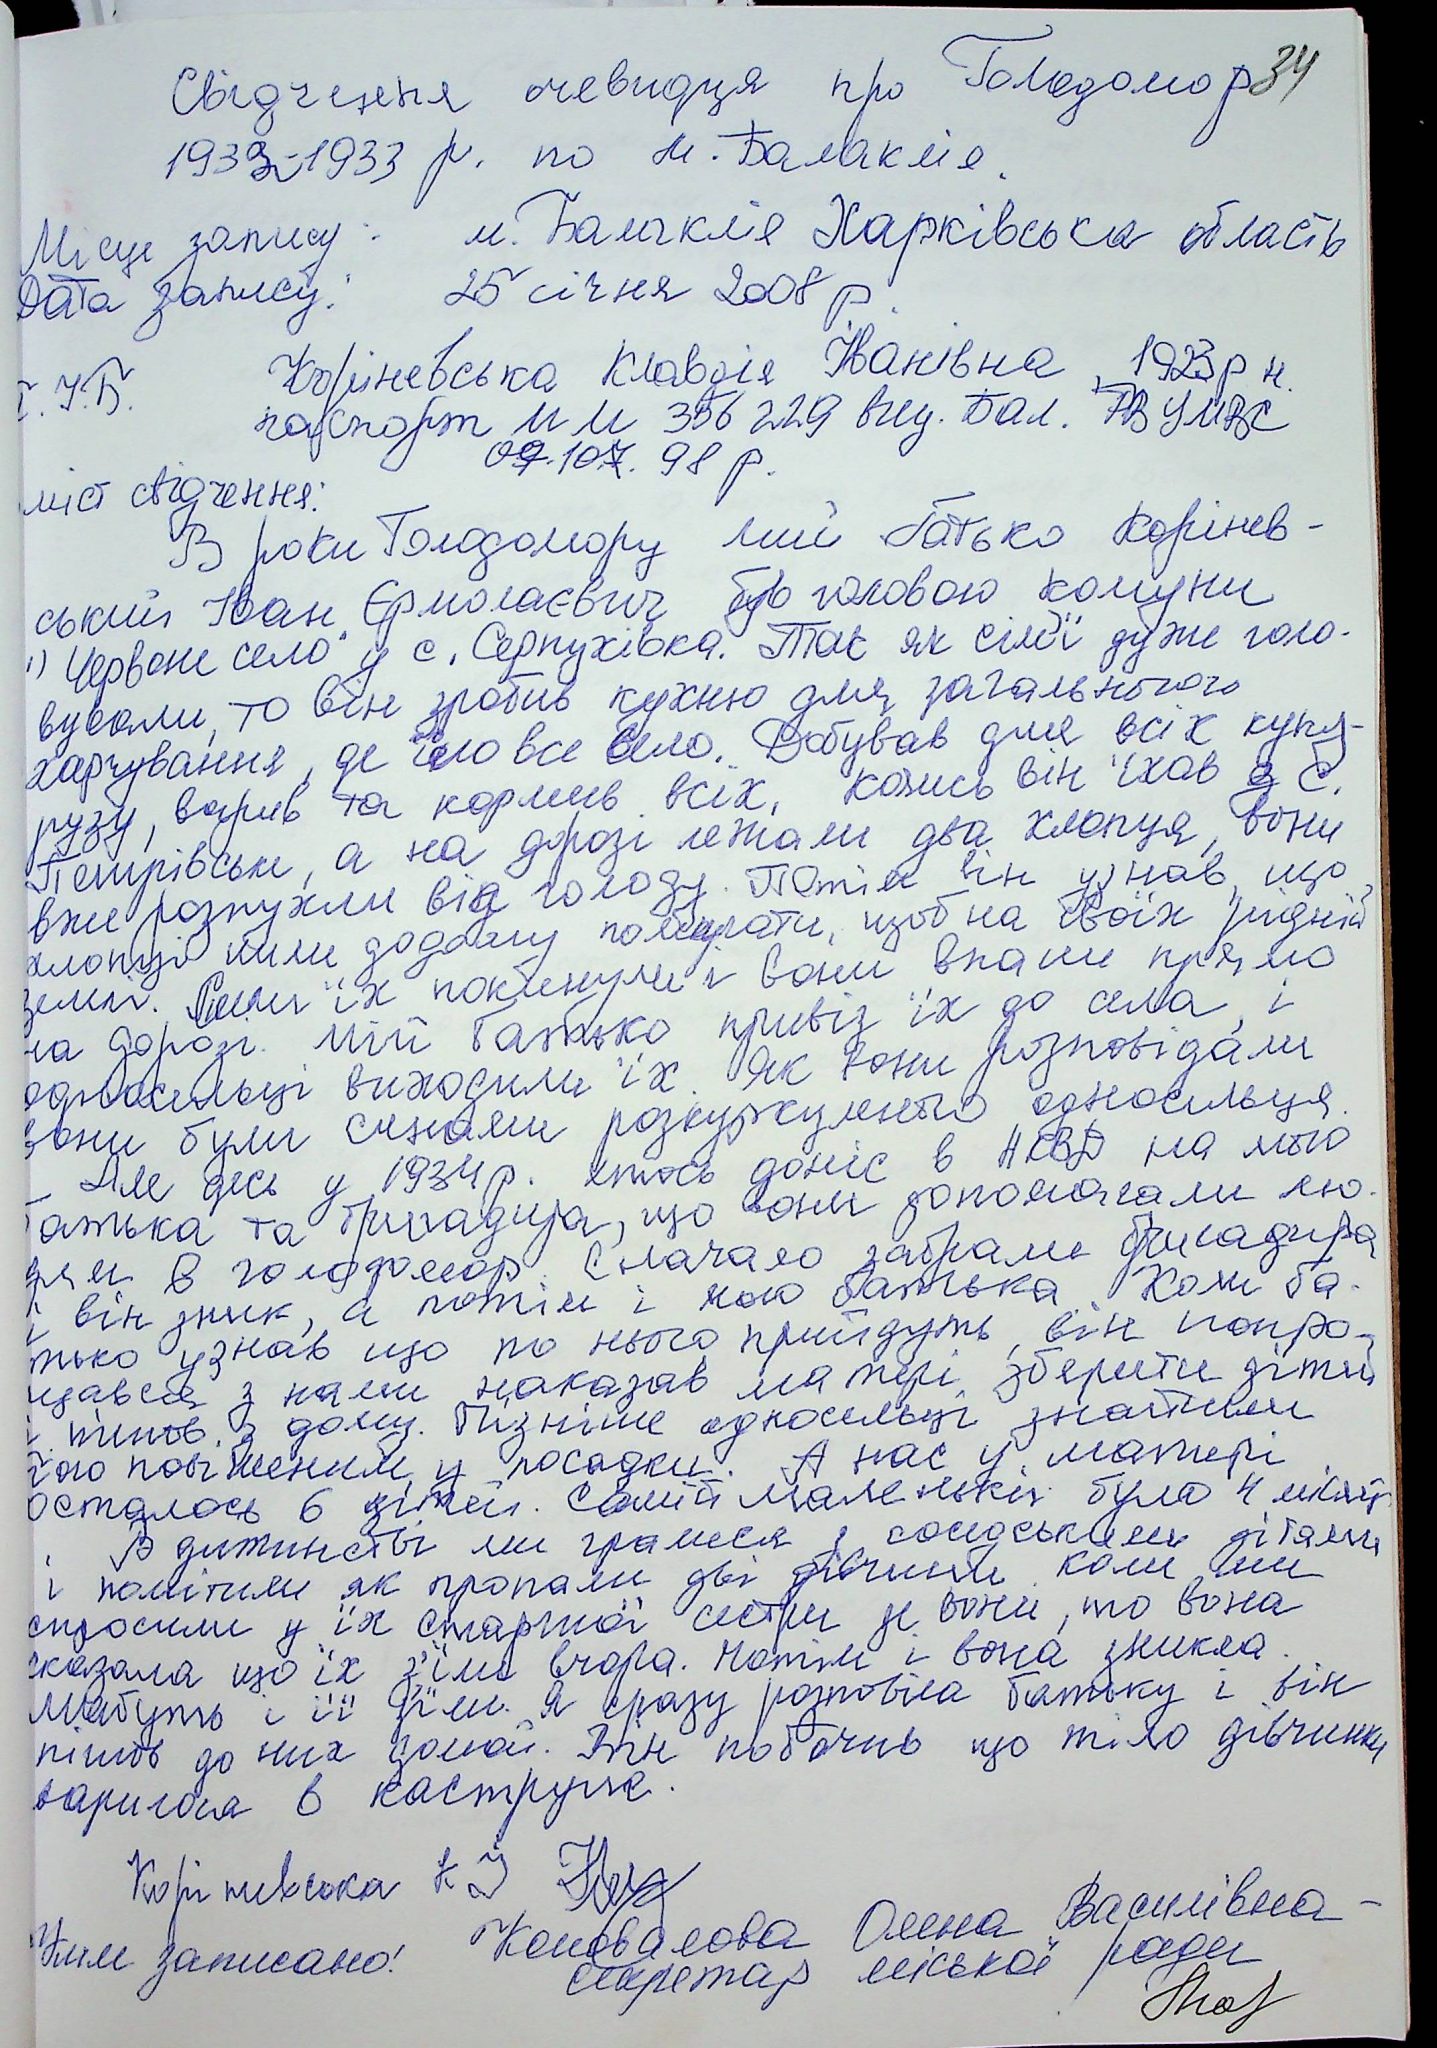 34
Свідчення очевидця про Голодомор
1932-1933 р. по м. Балаклія.
Місце запису: м. Балаклія Харківська область
Дата запису: 25 січня 2008 р.
І.Б. Коріневська Клавдія Іванівна 1923 р н.
паспорт М М 356229 вид. Бал. РВ УМВС
07. 98 р.
міст свідчення:
В роки Голодомору мій батько Корінев-
ський Іван Єрмолаєвич був головою комуни
"Червоне село" у с. Серпухівка. Так як сім'ї дуже голо-
вували, то він зробив кухню для загального
харчування, де їло все село. Добував для всіх куку-
рузу, варив та кормив всіх. Колись він їхав з с.
Петрівськи, а на дорозі лежали два хлопця, вони
вже розпухли від голоду. Потім він узнав, що
хлопці йшли додому помирати, щоб на своїх рідній
землі. Сили їх покинули і вони впали прямо
на дорозі. Мій батько привіз їх до села, і
односельці виходили їх. Як вони розповідали
вони були синами розкуркуленого односельця.
Але десь у 1934 р. хтось доніс в НКВД на мого
батька та бригадира, що вони допомагали лю-
дям в голодомор. Сначало забрали бригадира
і він зник, а потім і мого батька. Коли ба-
тько узнав що по нього прийдуть, він попро-
щався з нами наказав матері зберегти дітей
і пішов з дому. Пізніше односельці знайшли
його повішеним у посадки. А нас у матері
осталось 6 дітей. Самій маленькій було 4 місяці
В дитинстві ми гралися з сусідськими дітьми
і помітили як пропали дві дівчинки. коли ми
спросили у їх старшої сестри де вони, то вона
сказала що їх з'їли вчора. Потім і вона зникла.
Мабуть і її з'їли. Я сразу розповіла батьку і він
пішов до них домой. Він побачив що тіло дівчинки
варилося в каструле.
Коріневська К І
Ким записано: Коновалова Олена Василівна -
секретар міської ради